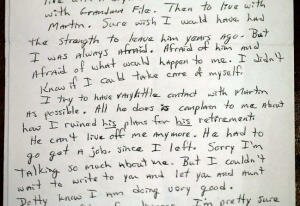 with Grandma File. Then to live with
Martin. Sure wish I would have had
the strength to leave him years ago. But
I was always afraid. Afraid of him and
Afraid of what would happen to me. I didn't
Know if I could take care of myself.
I try to have very little contact with Martin
as possible. All he does is complain to me about
how I ruined his plans for his retirement.
He can't live off me anymore. He had to
go get a job, since I left. Sorry I'm
talking so much about me. But I couldn't
wait to write to you and let you and Aunt
Dotty know I am doing very good.
I'm pretty sure